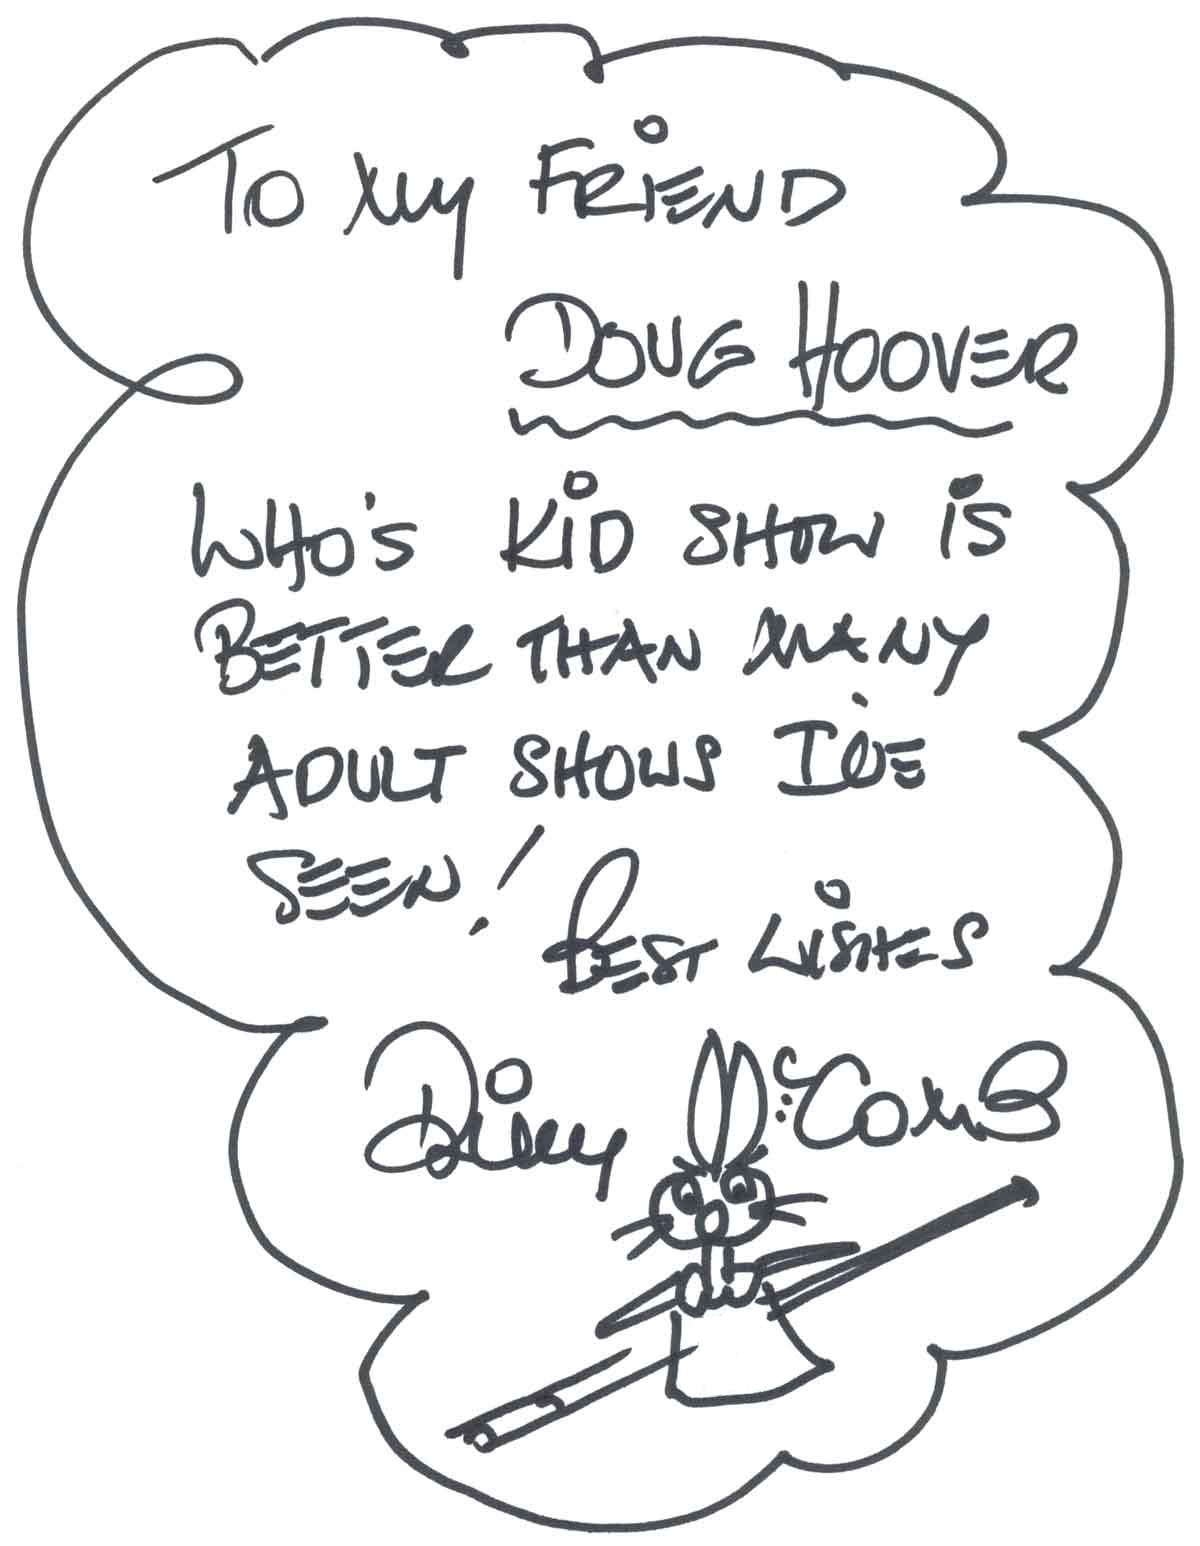 To My FRiEND
DOUG HOOVER
WHO'S KiD SHOW iS
BETTER THAN MANY
ADULT SHOWS I'VE
SEEN!
BEST WiSHES
Billy McComb